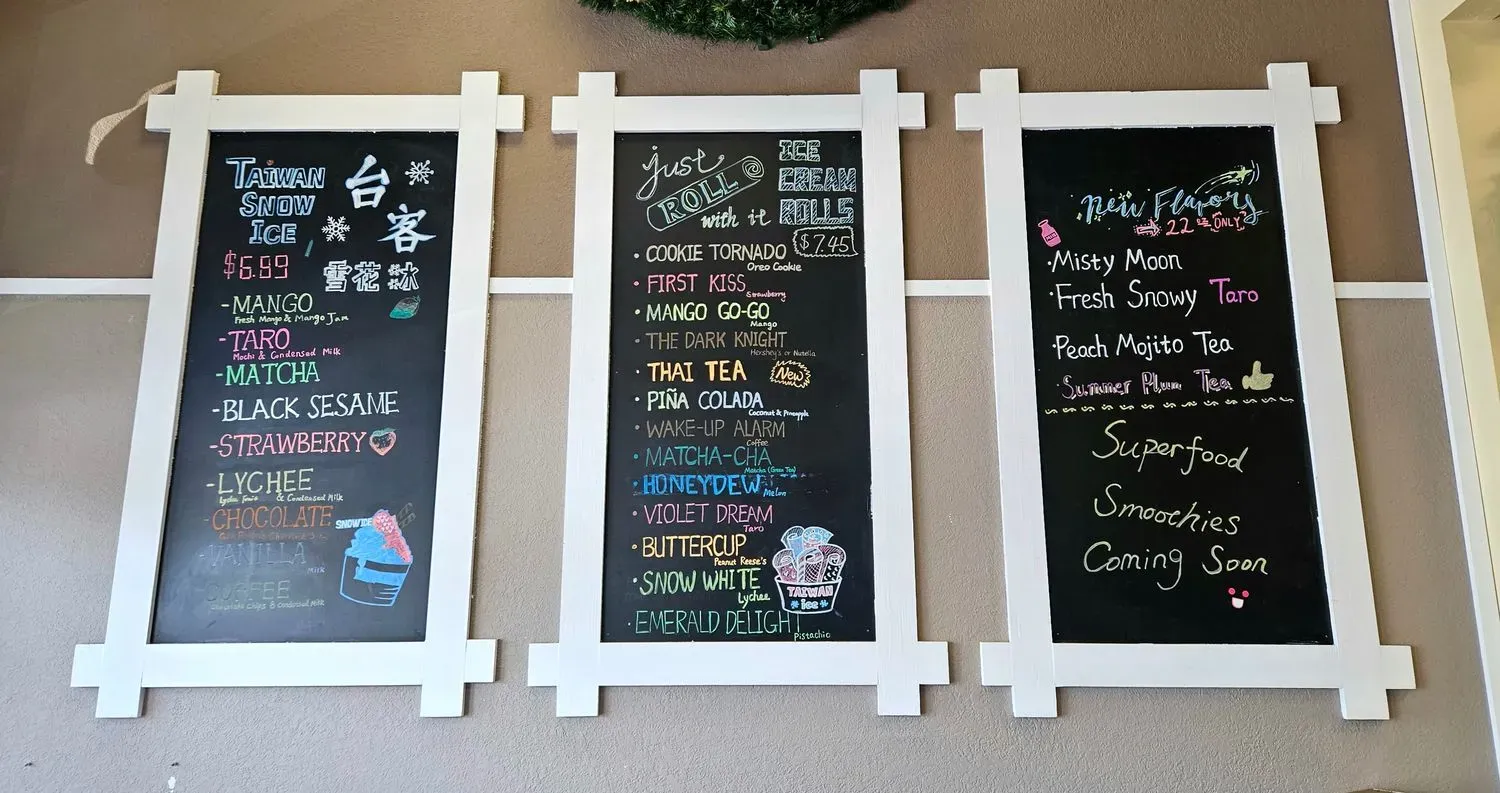 TAIWAN
SNOW
ICE
台
客
$6.99
雪花冰
-MANGO
Fresh Mango & Mango Jam
-TARO
Mochi & Condensed Milk
-MATCHA
-BLACK SESAME
-STRAWBERRY
-LYCHEE
& Condensed Milk
-CHOCOLATE
SNOW ICE
-VANILLA
Milk
COFFEE
Chocolate Chips & Condensed Milk
just
ROLL
with it
ICE
CREAM
ROLLS
$7.45
• COOKIE TORNADO
Oreo Cookie
• FIRST KISS
Strawberry
• MANGO GO-GO
Mango
• THE DARK KNIGHT
Hershey's or Nutella
• THAI TEA
New
• PIÑA COLADA
Coconut & Pineapple
• WAKE-UP ALARM
Coffee
• MATCHA-CHA
Matcha (Green Tea)
• HONEYDEW
Melon
• VIOLET DREAM
Taro
• BUTTERCUP
Peanut Reese's
• SNOW WHITE
Lychee
• EMERALD DELIGHT
Pistachio
TAIWAN
ice
New Flavors
22 oz ONLY
•Misty Moon
•Fresh Snowy Taro
•Peach Mojito Tea
•Summer Plum Tea
Superfood
Smoothies
Coming Soon